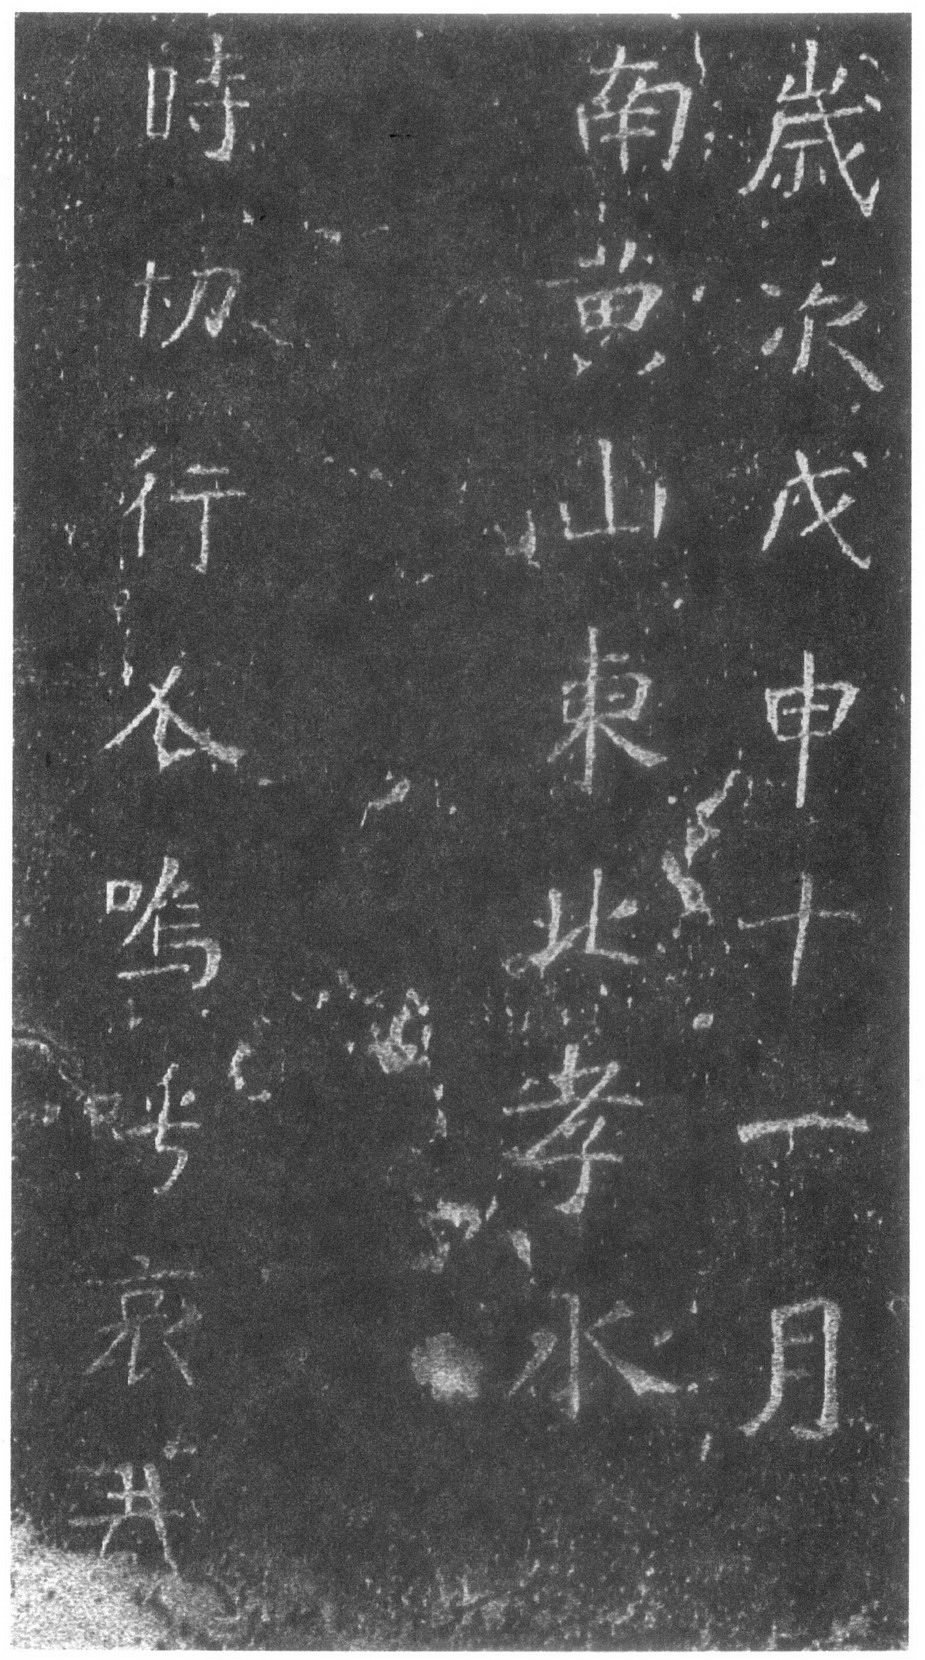 歲次戊申十一月
南黄山東北孝水
時切行公嗚哀